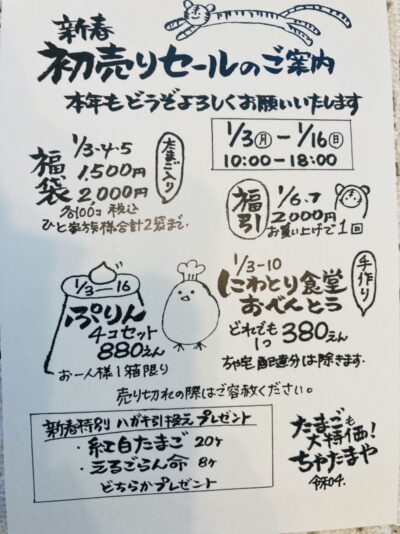 新春
初売りセールのご案内
本年もどうぞよろしくお願いいたします
1/3(月)-1/16(日)
10:00-18:00
福袋
1/3・4・5
1,500円
2,000円
各100コ 税込
ひと家族様合計2袋まで
たまご入り
福引
1/6.7
2,000円
お買い上げで1回
1/3-16
ぷりん
4コセット
880えん
お一人様1箱限り
1/3-10
にわとり食堂
おべんとう
手作り
どれでも
1つ 380えん
ちゃ宅配達分は除きます。
売り切れの際はご容赦ください。
新春特別 ハガキ引換え プレゼント
・紅白たまご 20ヶ
・えるごらん命 8ヶ
どちらかプレゼント
たまごも
大特価!
ちゃたまや
令和04.